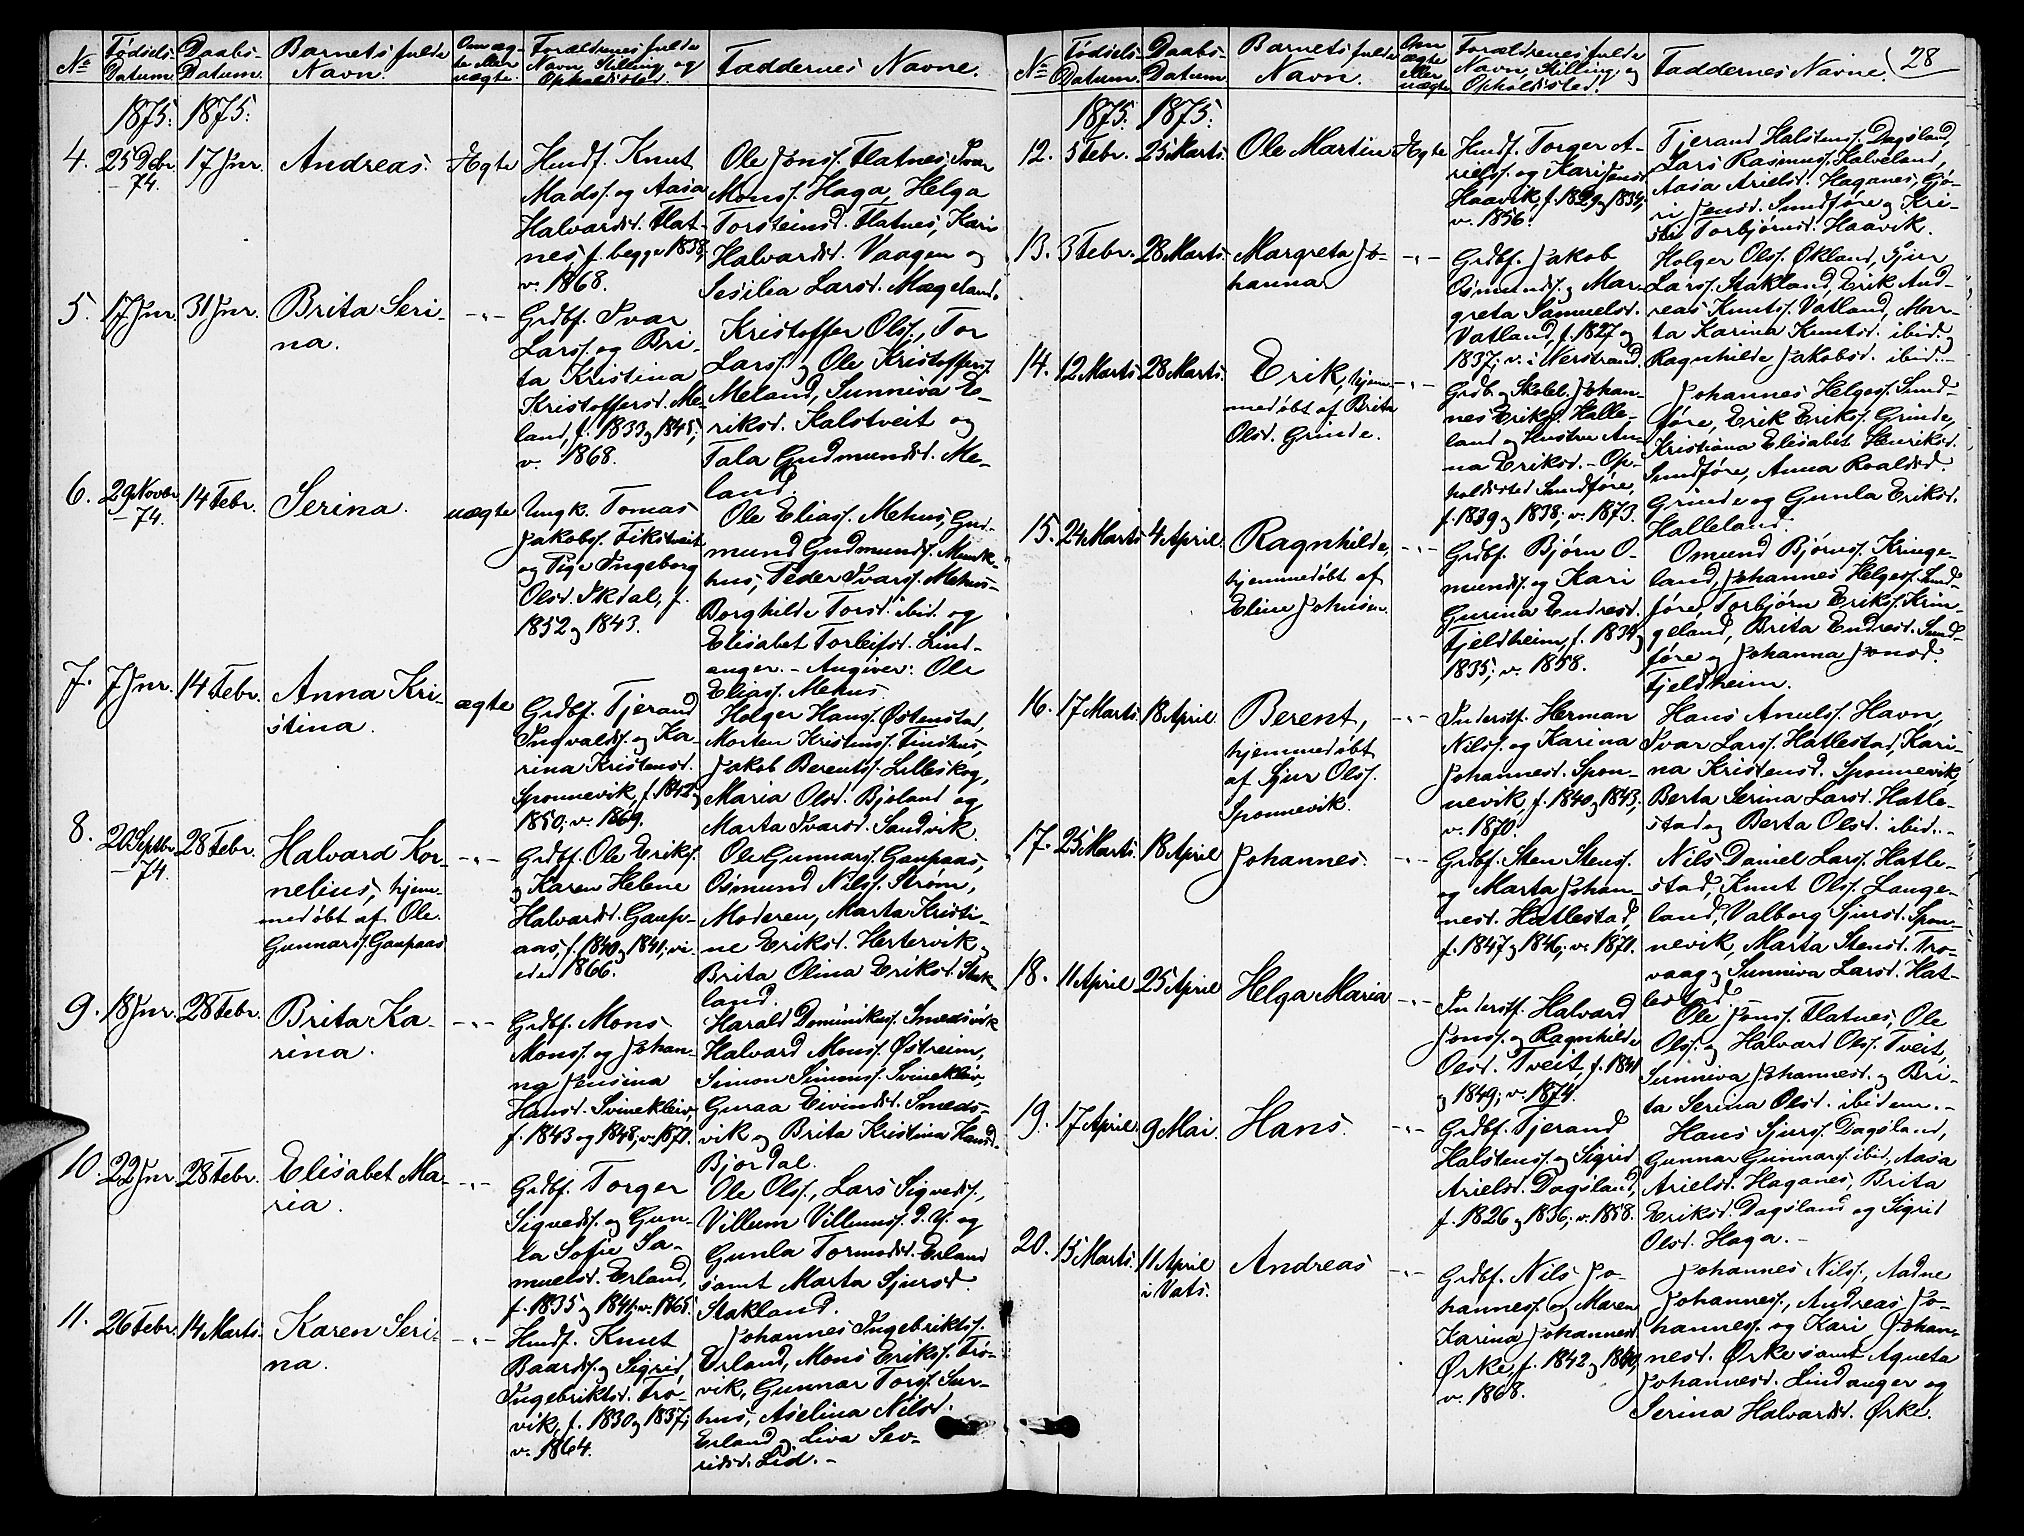 No
Fødsels-
Datum.
Daabs-
Datum.
Barnets fulde
Navn.
Om æg-
te eller
uægte.
Forældrenes fulde
Navn, Stilling og
Opholdssted.
Faddernes Navne.
1875: 1875:
4. 25 Decbr. -74. 17 Jnr. Andreas. Ægte
Husmf. Knut
Madss. og Aasa
Halvardsd. Flat-
nes f. begge 1838,
v. 1868.
Ole Jonss. Flatnes, Ivar
Monss. Haga, Helga
Torsteinsd. Flatnes, Kari
Halvardsd. Vaagen og
Sesilia Larsd. Mæeland.
5. 17 Jnr. 31 Jnr. Brita Seri-
na. -"-
Grdbf. Ivar
Larss. og Bri-
ta Kristina
Kristoffersd. Me-
land, f. 1833 og 1845,
v. 1868.
Kristoffer Olss., Tor
Larss. og Ole Kristofferss.
Meland, Sunniva E-
riksd. Kalstveit og
Tala Gudmundsd. Me-
land.
6. 29 Novbr. -74. 14 Febr. Serina. uægte
Ungk. Tomas
Jakobss. Fikstveit
og Pige Ingeborg
Olsd. Økdal, f.
1852 og 1843.
Ole Eliass. Mehus, Gud-
mund Gudmundss. Munk-
hus, Peder Ivarss. Mehus-
Borghilde Torsd. ibid. og
Elisabet Torleifsd. Lind-
anger. - Angiver: Ole
Eliass. Mehus.
7. 7 Jnr. 14 Febr. Anna Kri-
stina. ægte
Grdbf. Tjerand
Ingvaldss. og Ka-
rina Kristensd.
Sponnevik, f. 1842 og
1850, v. 1869.
Holger Hanss. Østenstad,
Morten Kristenss. Finshus,
Jakob Berentss. Lilleskog,
Maria Olsd. Bjoland og
Marta Ivarsd. Sandvik.
8. 20 Septbr. -74. 28 Febr. Halvard Kor-
nelius, hjem-
medøbt af Ole
Gunnarss. Gaupaas -"-
Grdbf. Ole Erikss.
og Karen Helene
Halvardsd. Gaup-
aas, f. 1840 og 1841, vi-
ede 1866.
Ole Gunnarss. Gaupaas,
Osmund Nilss. Strøm,
Moderen, Marta Kristi-
ne Eriksd. Hertervik og
Brita Olina Eriksd. Stak-
land.
9. 18 Jnr. 28 Febr. Brita Ka-
rina. -"-
Grdbf. Mons
Monss. og Johan-
na Jensina
Hansd. Svinekleiv,
f. 1843 og 1848, v. 1871.
Harald Dominikuss. Smedsvik
Halvard Monss. Østreim,
Simon Simonss. Svinekleiv,
Guraa Eivindsd. Smeds-
vik og Brita Kristina Hansd.
Bjordal.
10. 22 Jnr. 28 Febr. Elisabet Ma-
ria. -"-
Grdbf. Torger
Sigvedss. og Gun-
la Sofie Sa-
muelsd. Erland,
f. 1835 og 1841, v. 1865.
Ole Olss., Lars Sigvedss.,
Villum Villumss. d. Y. og
Gunla Tormodsd. Erland
samt Marta Sjursd.
Stakland.
11. 26 Febr. 14 Marts. Karen Seri-
na. -"-
Husmf. Knut
Baardss. og Sigrid
Ingebriktsd. Trо-
vik, f. 1830 og 1837,
v. 1864.
Johannes Ingebriktss.
Erland, Mons Erikss. Tro-
vik, Gunnar Torss. Sur-
hus, Aselina Nilsd.
Erland og Liva Sev-
ridsd. Lid. -
No
Fødsels-
Datum.
Daabs-
Datum.
Barnets fulde
Navn.
Om
ægte
eller
uægte
Forældrenes fulde
Navn, Stilling og
Opholdssted.
Faddernes Navne.
28
1875: 1875:
12. 5 Febr. 25 Marts. Ole Martin Ægte
Husmf. Torger A-
rielss. og Kari Jensd.
Haavik, f. 1829 og 1834,
v. 1856.
Tjerand Halstenss. Dagsland,
Lars Rasmuss. Halveland,
Aasa Arielsd. Haganes, Gjø-
ri Jensd. Sundføre og Kri-
sti Torbjørnsd. Haavik.
13. 3 Febr. 28 Marts. Margreta Jo-
hanna -"-
Grdbf. Jakob
Osmundss. og Mar-
greta Samuelsd.
Vatland, f. 1827 og
1837, v. i Nerstrand.
Holger Olss. Økland, Sjur
Larss. Stakland, Erik And-
reas Knutss. Vatland, Mar-
ta Karina Knutsd. ibid. og
Ragnhilde Jakobsd. ibid. -
14. 12 Marts 28 Marts. Erik, hjem-
medøbt af Brita
Olsd. Grinde. -"-
Grdb. og Skolel. Johan-
nes Erikss. Halle-
land og Hustru An-
na Eriksd. - Op-
holdssted Sundføre,
f. 1839 og 1838, v. 1873.
Johannes Helgess. Sund-
føre, Erik Erikss. Grinde,
Kristiana Elisabet Henriksd.
Sundføre, Anna Roaldsd.
Grinde og Gunla Eriksd.
Halleland.
15. 24 Marts 4 April. Ragnhilde,
hjemmedøbt af
Eline Johnsen. -"-
Grdbf. Bjørn O-
mundss. og Kari
Gurina Endresd.
Fjeldheim, f. 1834 og
1835, v. 1858.
Osmund Bjørnss. Kringe-
land, Johannes Helgess. Sund-
føre, Torbjørn Erikss. Krin-
geland, Brita Endresd. Sund-
føre og Johanna Jonsd.
Fjeldheim.
16. 17 Marts. 18 April. Berent,
hjemmedøbt
af Sjur Olss.
Sponnevik. -"-
Inderstf. Herman
Nilss. og Karina
Johannesd. Spon-
nevik, f. 1840 og 1843,
v. 1870.
Hans Amelss. Havn,
Ivar Larss. Hatlestad, Kari-
na Kristensd. Sponnevik,
Berta Serina Larsd. Hatle-
stad og Berta Olsd. ibid. -
17. 25 Marts. 18 April Johannes. -"-
Grdbf. Sten Stenss.
og Marta Johan-
nesd. Hatlestad,
f. 1847 og 1846, v. 1871.
Nils Daniel Larss. Hatle-
stad, Knut Olss. Lange-
land, Valborg Sjursd. Spon-
nevik, Marta Stensd. Tro-
vaag og Sunniva Larsd. Hat-
lestad.
18. 11 April 25 April Helga Maria -"-
Inderstf. Halvard
Jonss. og Ragnhilde
Olsd. Tveit, f. 1841
og 1849; v. 1874.
Ole Jonss. Flatnes, Ole
Olss. og Halvard Olss. Tveit,
Sunniva Johannesd. og Bri-
ta Serina Olsd. ibidem. -
19. 17 April. 9 Mai. Hans. -"-
Grdbf. Tjerand
Halstenss. og Sigrid
Arielsd. Dagsland,
f. 1826 og 1836, v. 1858.
Hans Sjurss. Dagsland,
Gunnar Gunnarss. ibid, Aasa
Arielsd. Haganes, Brita
Eriksd. Dagsland og Sigrid
Olsd. Haga. -
20. 15 Marts. 11 April
i Vats. Andreas -"-
Grdbf. Nils Jo-
hanness. og Maren
Karina Johannesd.
Ørke, f. 1842 og 1840,
v. 1868.
Johannes Nilss., Aadne
Johanness., Andreas Jo-
hanness. og Kari Johan-
nesd. Ørke samt Agneta
Johannesd. Lindanger og
Serina Halvardsd. Ørke.